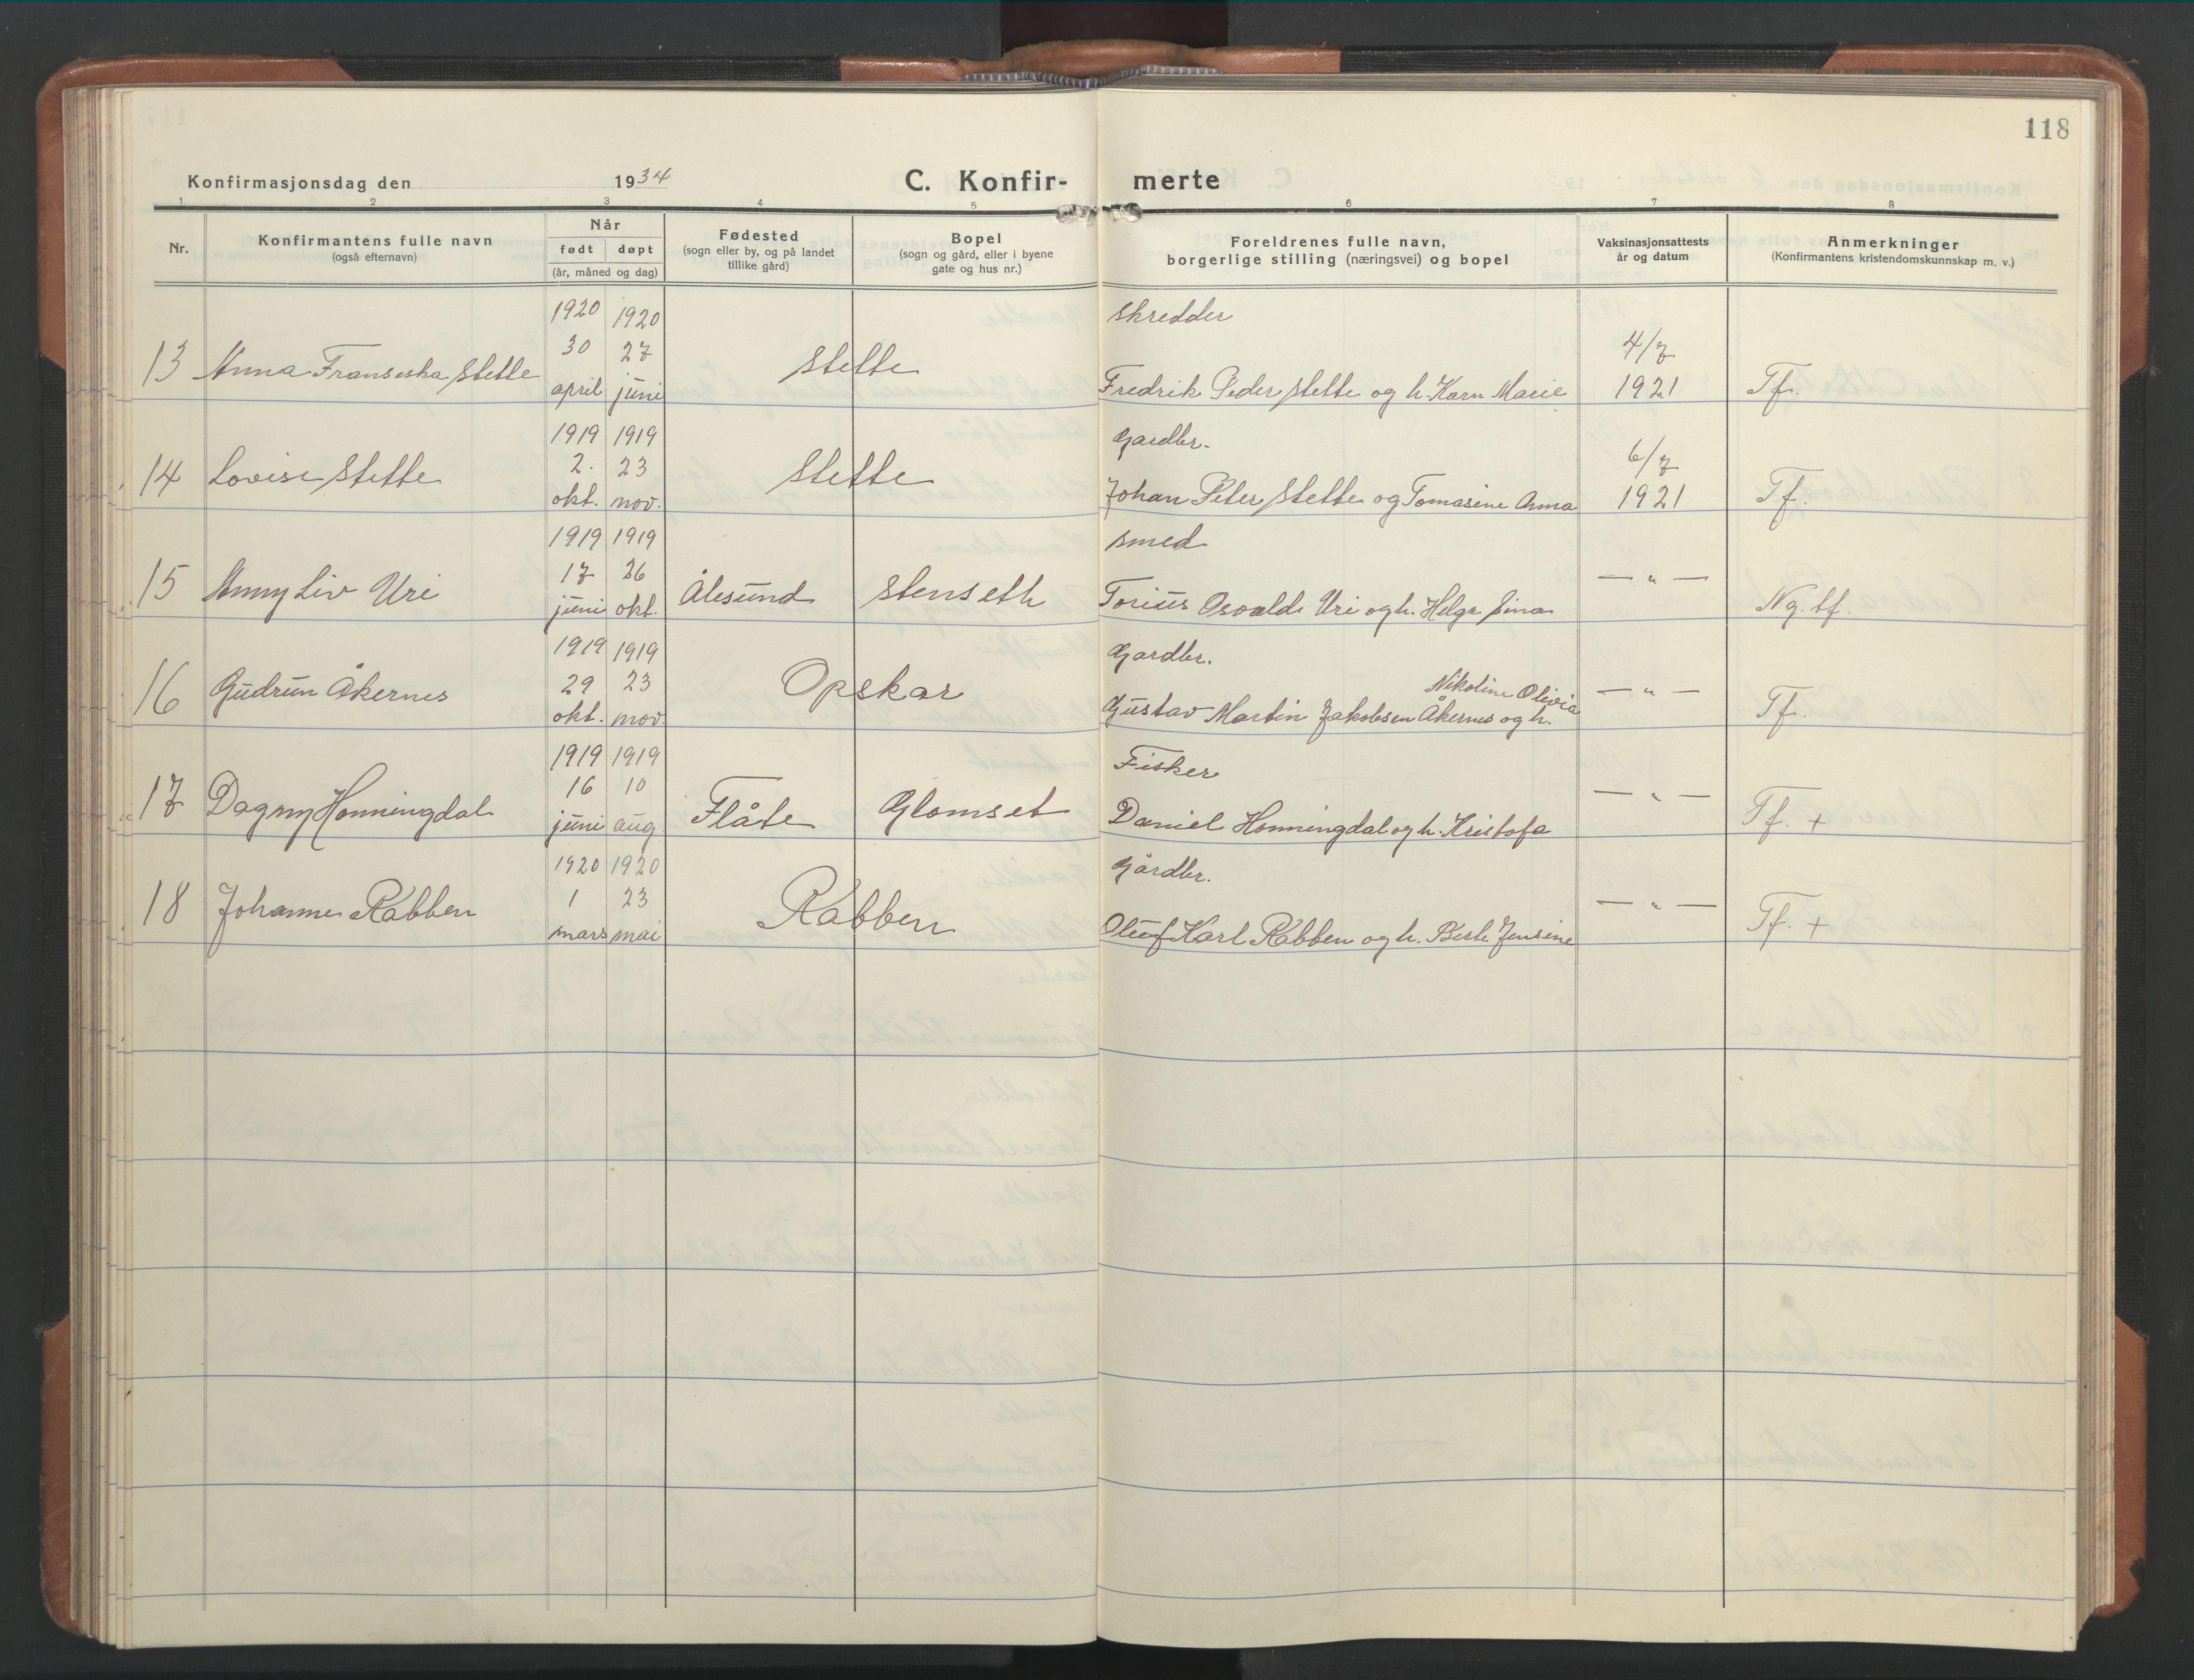 118
Konfirmasjonsdag den 1934 C. Konfir- merte
1 2 3 4 5 6 7 8
Nr. Konfirmantens fulle navn (også efternavn) Når født døpt (år, måned og dag) Fødested (sogn eller by, og på landet tillike gård) Bopel (sogn og gård, eller i byene gate og hus nr.) Foreldrenes fulle navn, borgerlige stilling (næringsvei) og bopel Vaksinasjonsattests år og datum Anmerkninger (Konfirmantens kristendomskunnskap m. v.)
1920 1920 skredder
30 27 4/7
13 Anna Fransiska Stette april juni Stette Fredrik Peder Stette og h. Karn Marie 1921 Tf.
1919 1919 Gardbr.
2. 23 6/7
14 Lovise Stette okt. nov. Stette Johan Peter Stette og Tomasine Anna 1921 Tf.
1919 1919 smed
17 26
15 Anny Liv Uri juni okt. Ålesund Stenseth Torius Osvald Uri og h. Helga Sina — " — Ng. tf.
1919 1919 Gardbr.
29 23 Nikoline Olivia
16 Gudrun Åkernes okt. nov. Opskar Gustav Martin Jakobsen Åkernes og h. — " — Tf.
1919 1919 Fisker
16 10
17 Dagny Honningdal juni aug Flåte Glomset Daniel Honningdal og h. Kristofa — " — Tf. +
1920 1920 Gårdbr.
1 23
18 Johanne Rabben mars mai Rabben Oluf Karl Rabben og h. Berte Jensine — " — Tf. +